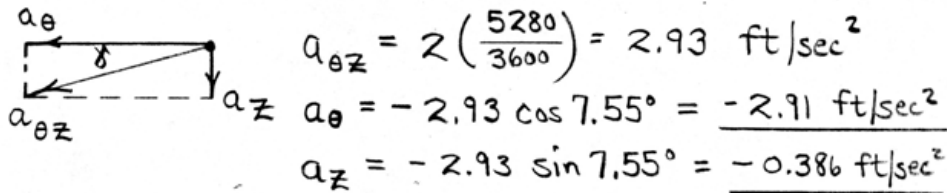 a_θ
γ
a_z
a_θz
a_θz = 2 (5280/3600) = 2.93 ft/sec²
a_θ = - 2.93 cos 7.55° = - 2.91 ft/sec²
a_z = - 2.93 sin 7.55° = - 0.386 ft/sec²